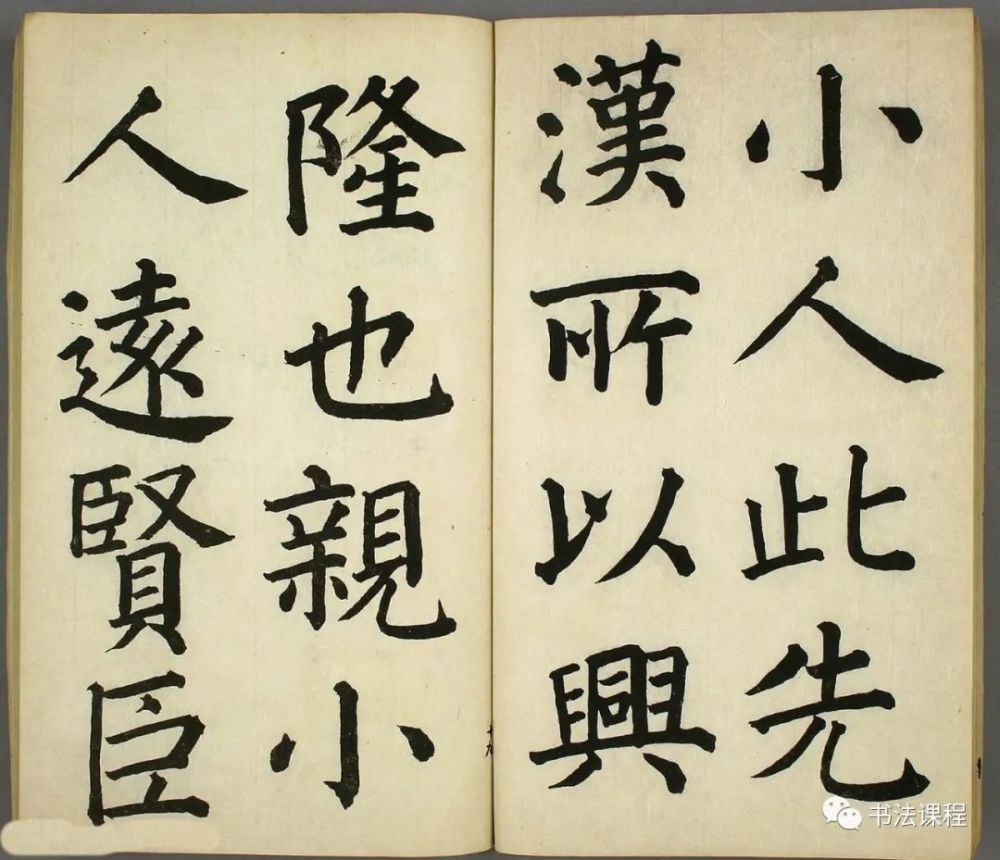 小人此先
漢所以興
隆也親小
人遠賢臣
书法课程